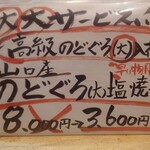 大大サービス
高級のどぐろ大入荷
山口産
のどぐろ(大)塩焼
8,000→3,600円